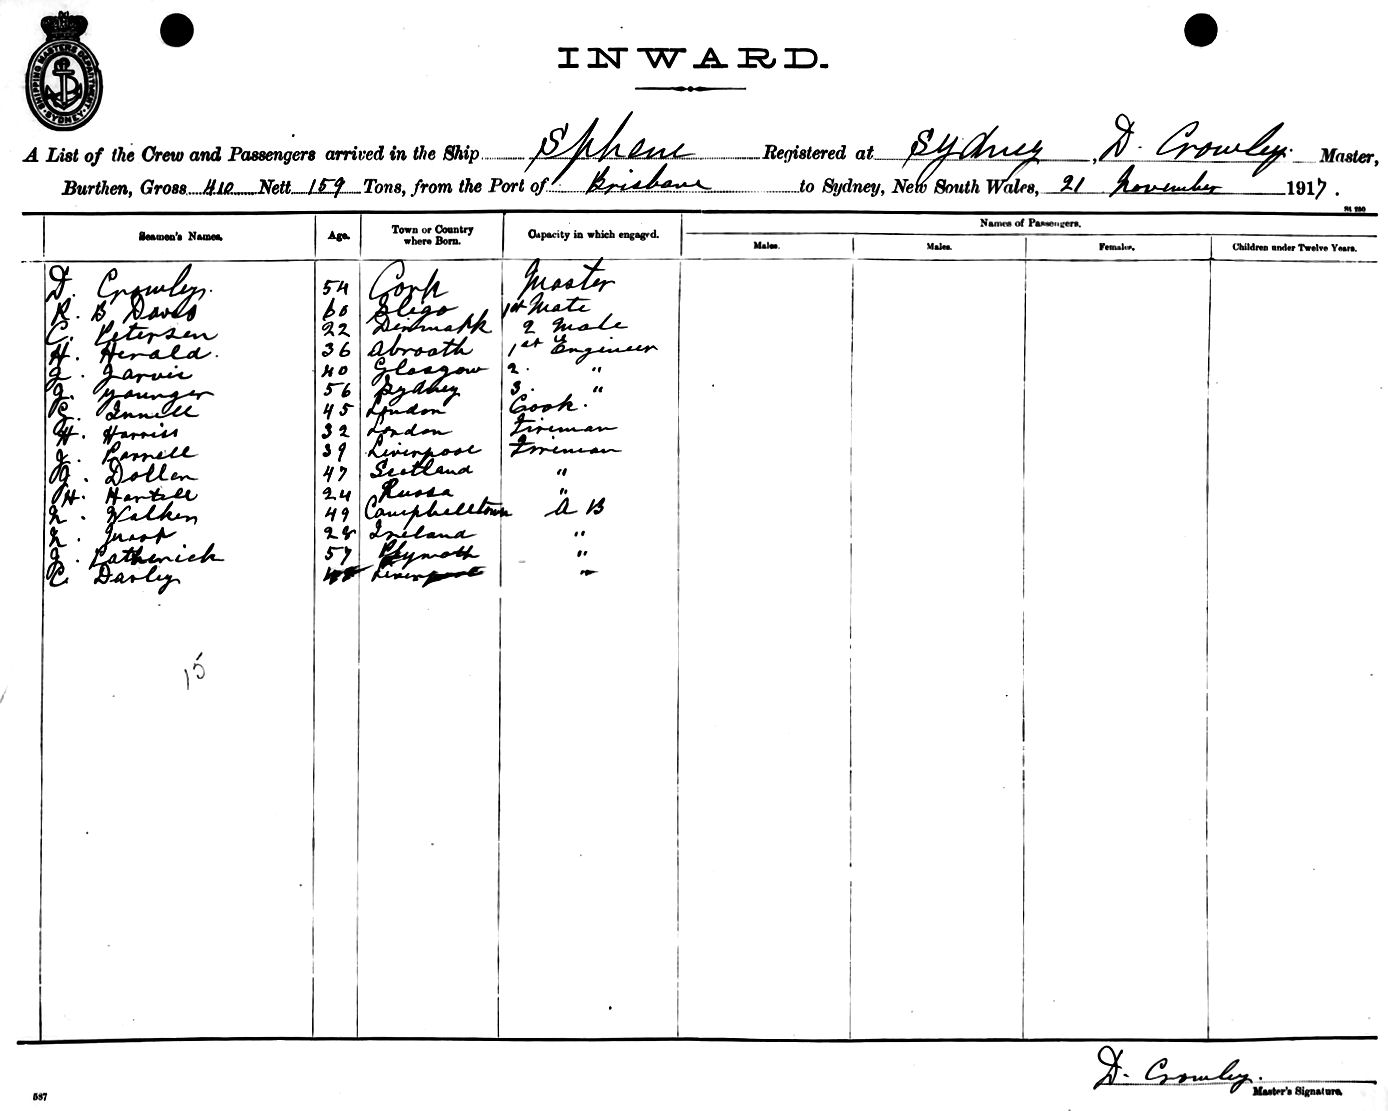 SHIPPING MASTERS DEPARTMENT SYDNEY
INWARD.
A List of the Crew and Passengers arrived in the Ship Sphene Registered at Sydney, D. Crowley. Master,
Burthen, Gross 410 Nett 159 Tons, from the Port of Brisbane to Sydney, New South Wales, 21 November 1917.
Seamen's Names. Age. Town or Country where Born. Capacity in which engaged. Names of Passengers.
Males. Males. Females. Children under Twelve Years.
D. Crowley. 54 Cork Master
R. B Daves 60 Sligo 1st Mate
C. Petersen 22 Dinmark 2 Mate
H. Herald. 36 Abroath 1st Engineer
J. Jarvis 40 Glasgow 2. "
J. Younger 56 Sydney 3. "
G. Innell 45 London Cook.
H. Harriss 32 London Fireman
J. Parnell 39 Liverpool Fireman
J. Dollen 47 Scotland "
H. Hartell 24 Russa "
Walken 49 Campbelltown A B
28 Ireland "
J. Patherick 57 Plymoth "
C. Darley 48 Liverpool "
15
D. Crowley.
Master's Signature.
587